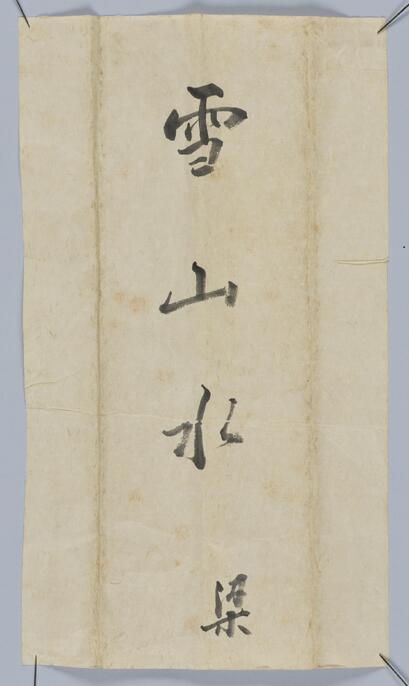 雪山水
梁